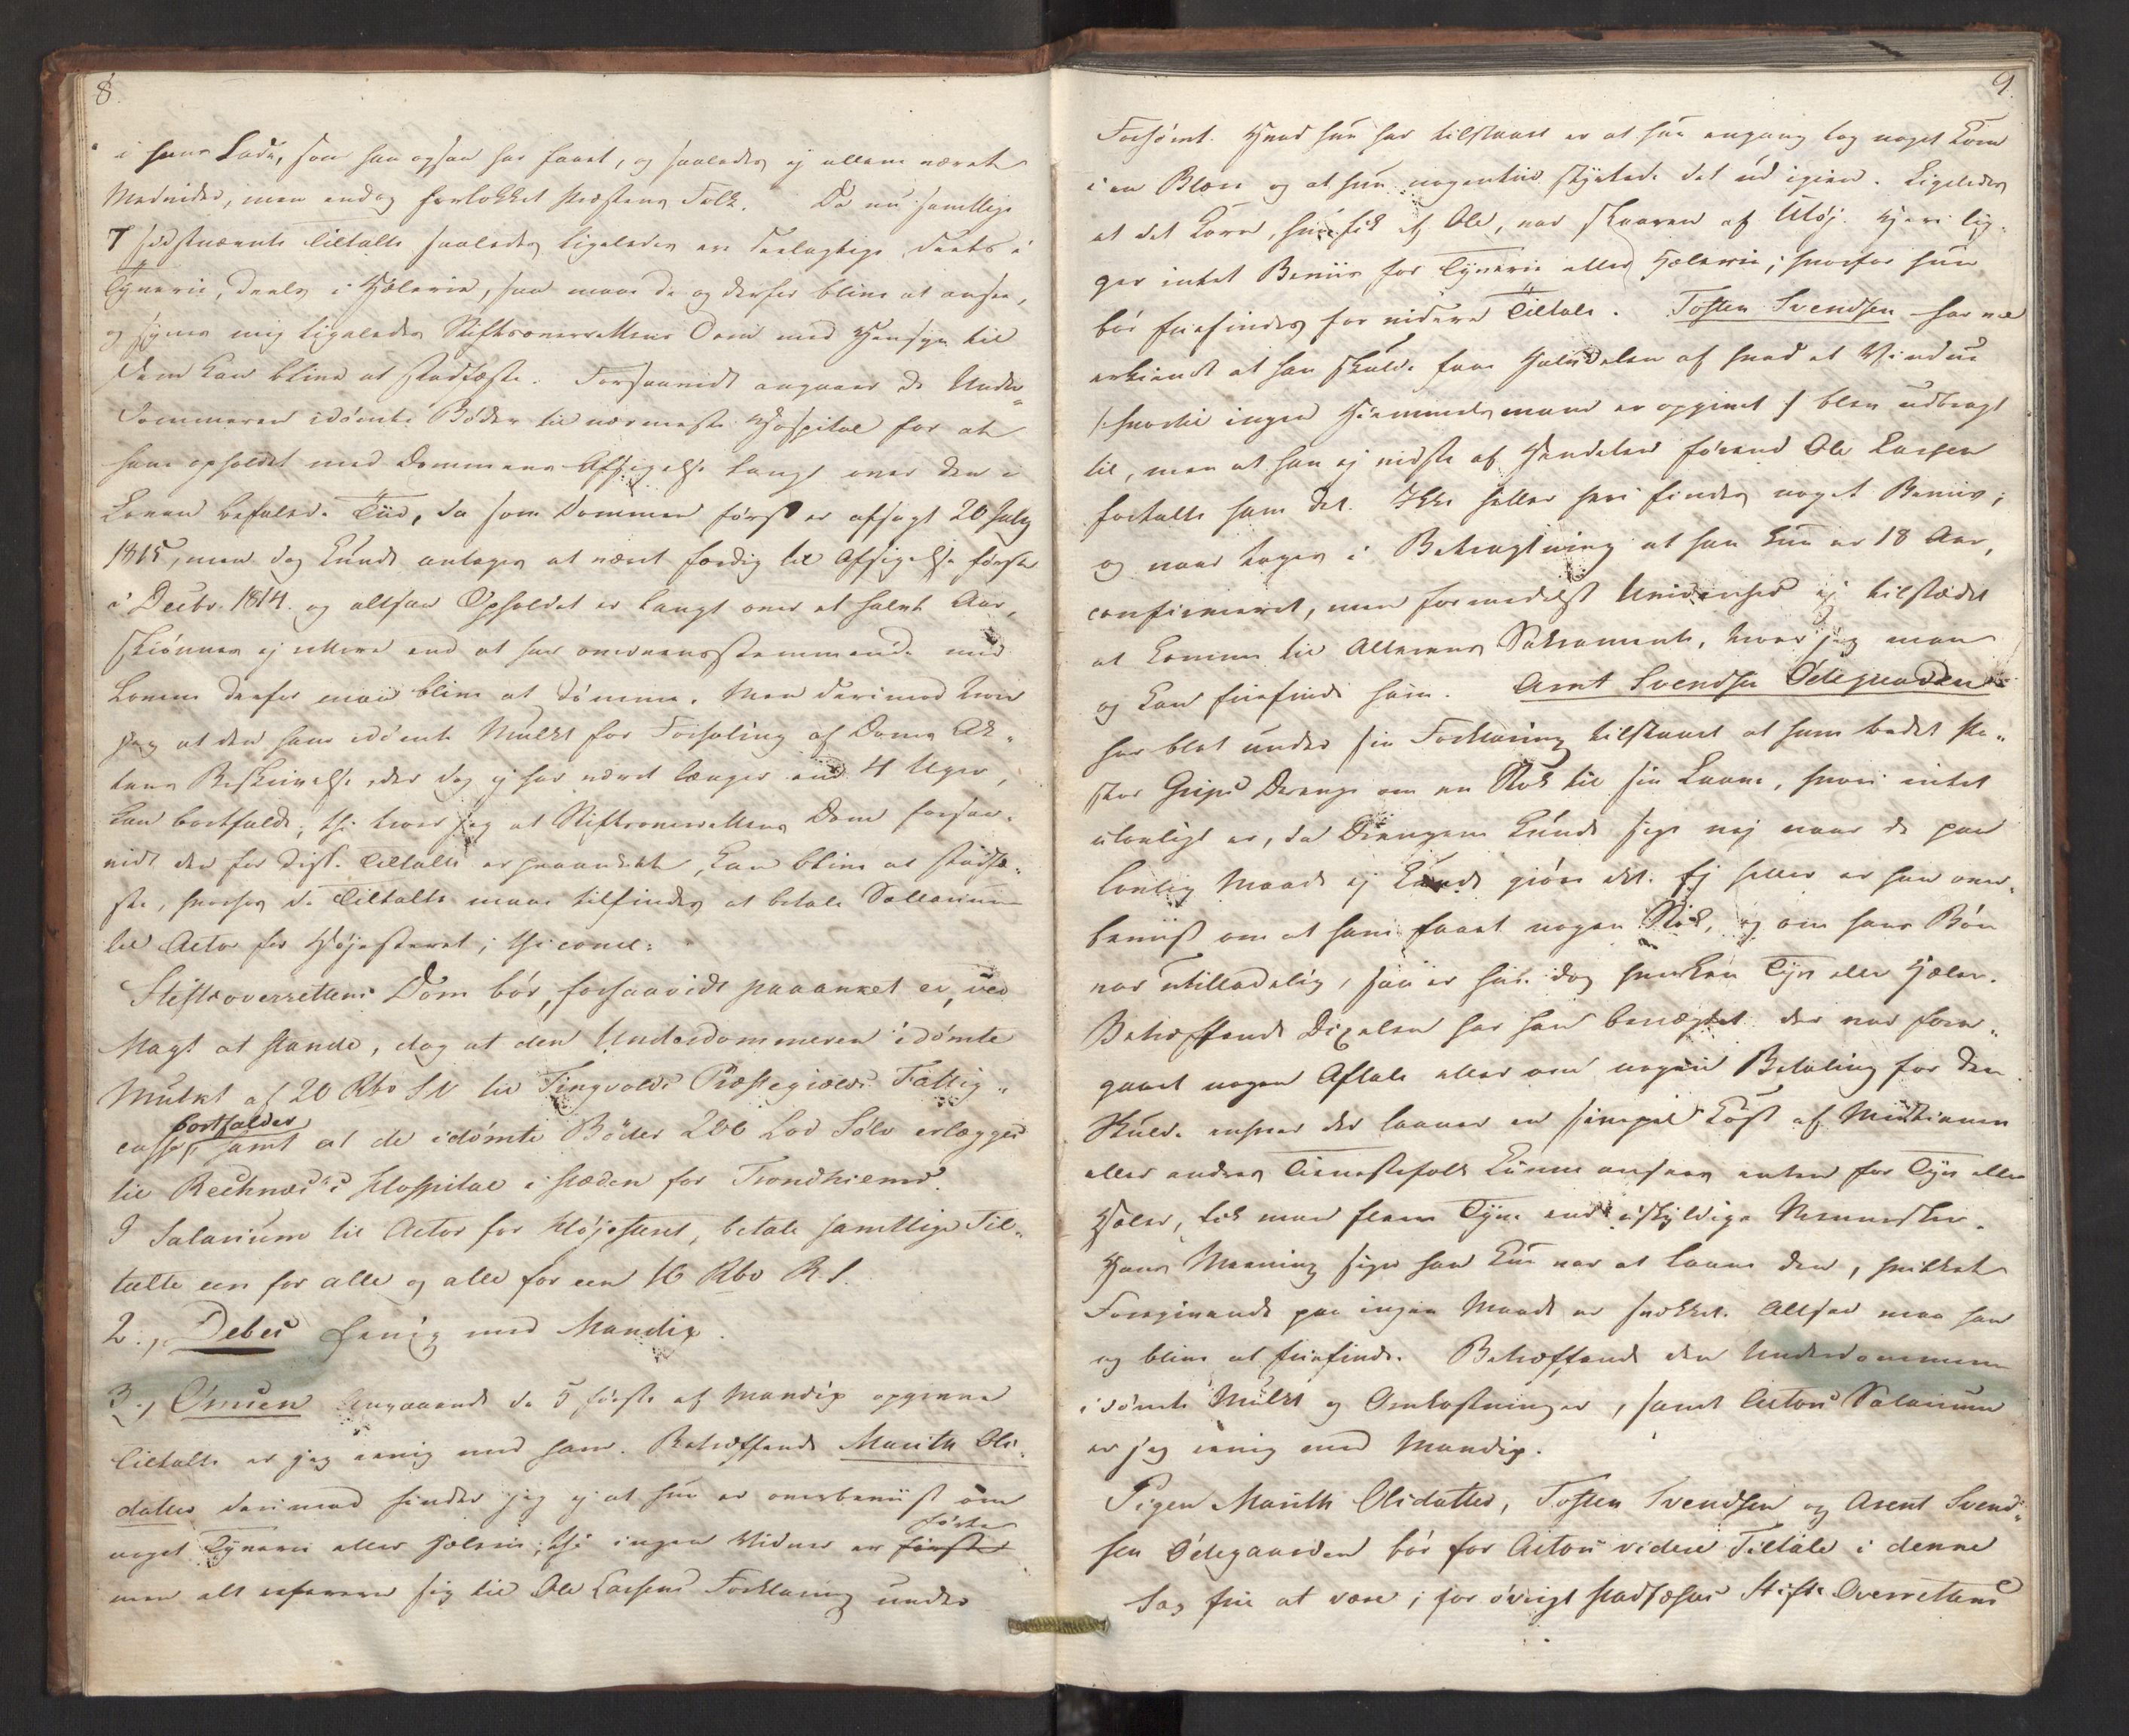 8.
i hans Lade, som han ogsaa har faaet, og saaledes ej allene været
Medvider, men endog forlokket Præstens Folk. Da nu samtlige
7 sidstnævnte Tiltalte saaledes ligeledes ere deelagtige deels i
Tyverie, deels i Hælerie, saa maae de og derfor blive at ansee,
og synes mig ligeledes Stiftsoverrettens Dom med Hensyn til
dem kan blive at stadfæste. Forsaavidt angaaer de Under-
dommeren idømte Bøder til nærmeste Hospital for at
have opholdt med Dommens Afsigelse langt over den i
Loven befalede Tiid, da som Dommen først er afsagt 20 July
1815, men dog kunde antages at været færdig til Afsigelse først
i Decbr. 1814. og altsaa Opholdet er langt over et halvt Aar,
skiønner ej rettere end at han overeensstemmende med
Loven derfor maae blive at dømme. Men derimod troer
jeg at den ham idømte Mulkt for Forhaling af Doms Ak-
tens Beskrivelse, der dog ej har været længer end 4 Uger,
kan bortfalde, thi troer jeg at Stiftsoverrettens Dom forsaa-
vidt den for disse Tiltalte er paaanket, kan blive at stadfæ-
ste, hvorhos de Tiltalte maae tilfindes at betale Sallarium
til Actor for Højesteret; thi concl:
Stiftsoverrettens Dom bør, forsaavidt paaanket er, ved
Magt at stande, dog at den Underdommeren idømte
Mulkt af 20 Rbd SV til Tingvolds Præstegields Fattig-
bortfalder
casse, samt at de idømte Bøder Lod Sølv erlægges
til Recknes's Hospital i stæden for Trondhiems.
I Salarium til Actor for Højesteret, betale samtlige Til-
talte een for alle og alle for een 16 Rbd R. S.
2., Debes Eenig med Mandix.
3., Omsen Angaaende de 5 første af Mandix opgivne
Tiltalte er jeg eenig med ham. Betreffende Marith Ols-
datter derimod finder jeg ej at hun er overbeviist om
førte
noget Tyverie eller Hælerie; thi ingen Vidner er
men alt refererer sig til Ole Larsens Forklaring under
9.
Forhørt. Hvad hun har tilstaaet er at hun engang tog noget Korn
i en og at hun nogentiid styrtede det ud igien. Ligeledes
at det Korn, hun fik af Ole, var skaaren af Utøj. Heri lig-
ger intet Beviis for Tyverie eller Hælerie; hvorfor hun
bør friefindes for videre Tiltale. Tosten Svendsen har vel
erkiendt at han skulde faae Halvdelen af hvad et Vindue
/: hvortil ingen Hiemmelsmand er opgivet :/ blev udbragt
til, men at han ej vidste af Handelen førend Ole Larsen
fortalte ham det. Ikke heller heri findes noget Beviis;
og naar tages i Betragtning at han kun er 18 Aar,
confirmeret, men formedelst Uvidenhed ej tilstædet
at komme til Alterens Sakramente, troer jeg man
og kan friefinde ham. Arnt Svendsen Ødegaarden
har blot under sin Forklaring tilstaaet at have bedet Pa-
stor Grips Drenge om en Stok til sin Laave, hvori intet
ulovligt er, da Drengene kunde sige nej naar de paa
lovlig Maade ej kunde giøre det. Ej heller er han over-
beviist om at have faaet nogen Stok, og om hans Bøn
var utilladelig, saa er han dog hverken Tyv eller Hæler.
Betreffende Dixelen har han benægtet der var fore-
gaaet nogen Aftale eller om nogen Betaling for den
Skulde enhver der laaner en simpel af
eller andres Tienestefolk kunne ansees enten for Tyv eller
Hæler, fik man flere Tyve end uskyldige Mennesker.
Hans Meening siger han kun var at laane den, hvilket
Foregivende paa ingen Maade er svækket. Altsaa maa han
og blive at friefinde. Betreffende den Underdommeren
idømte Mulkt og Omkostninger, samt Actors Salarium
er jeg eenig med Mandix.
Pigen Marith Olsdatter, Tosten Svendsen og Arent Svend-
sen Ødegaarden bør for Actors videre Tiltale i denne
Sag frie at være; for øvrigt stadfæstes Stifts Overrettens